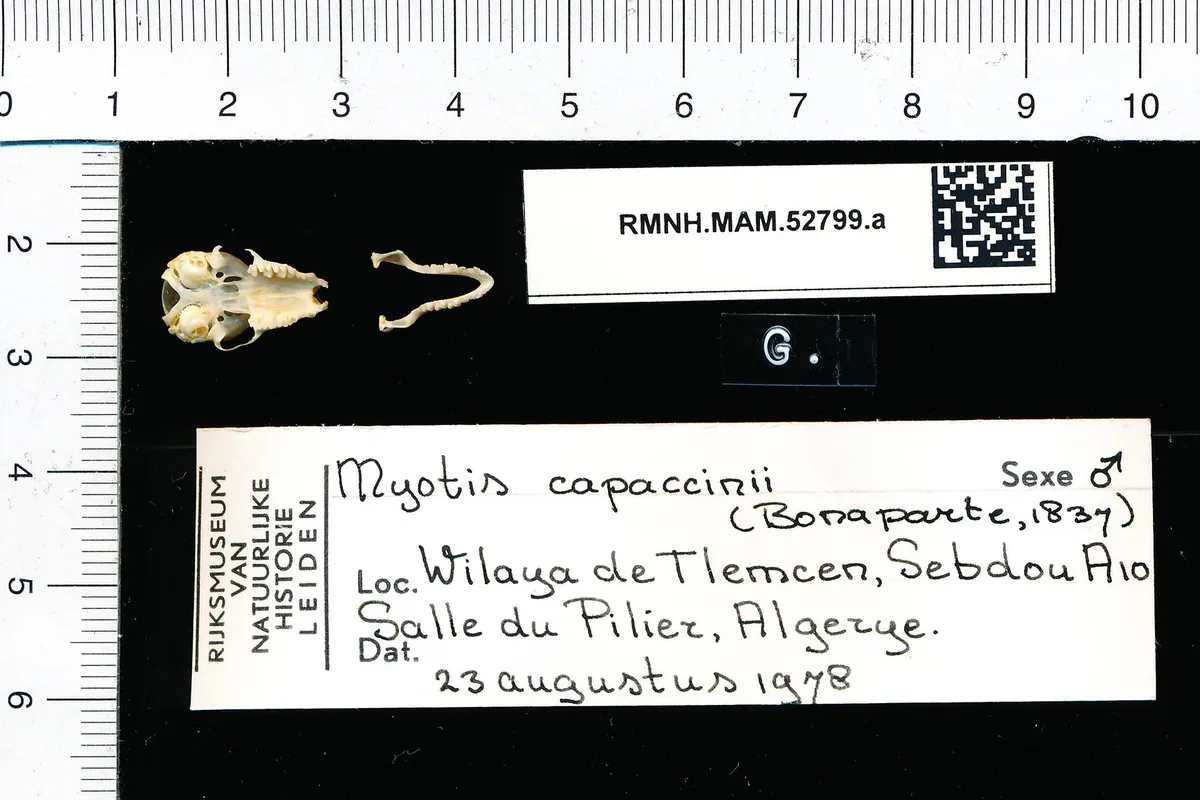 0 1 2 3 4 5 6 7 8 9 10
2
3
4
5
6
RMNH.MAM.52799.a
G.
RIJKSMUSEUM
VAN
NATUURLIJKE
HISTORIE
LEIDEN
Myotis capaccinii
Sexe ♂
(Bonaparte, 1837)
Loc. Wilaya de Tlemcen, Sebdou A10
Salle du Pilier, Algerye.
Dat.
23 augustus 1978